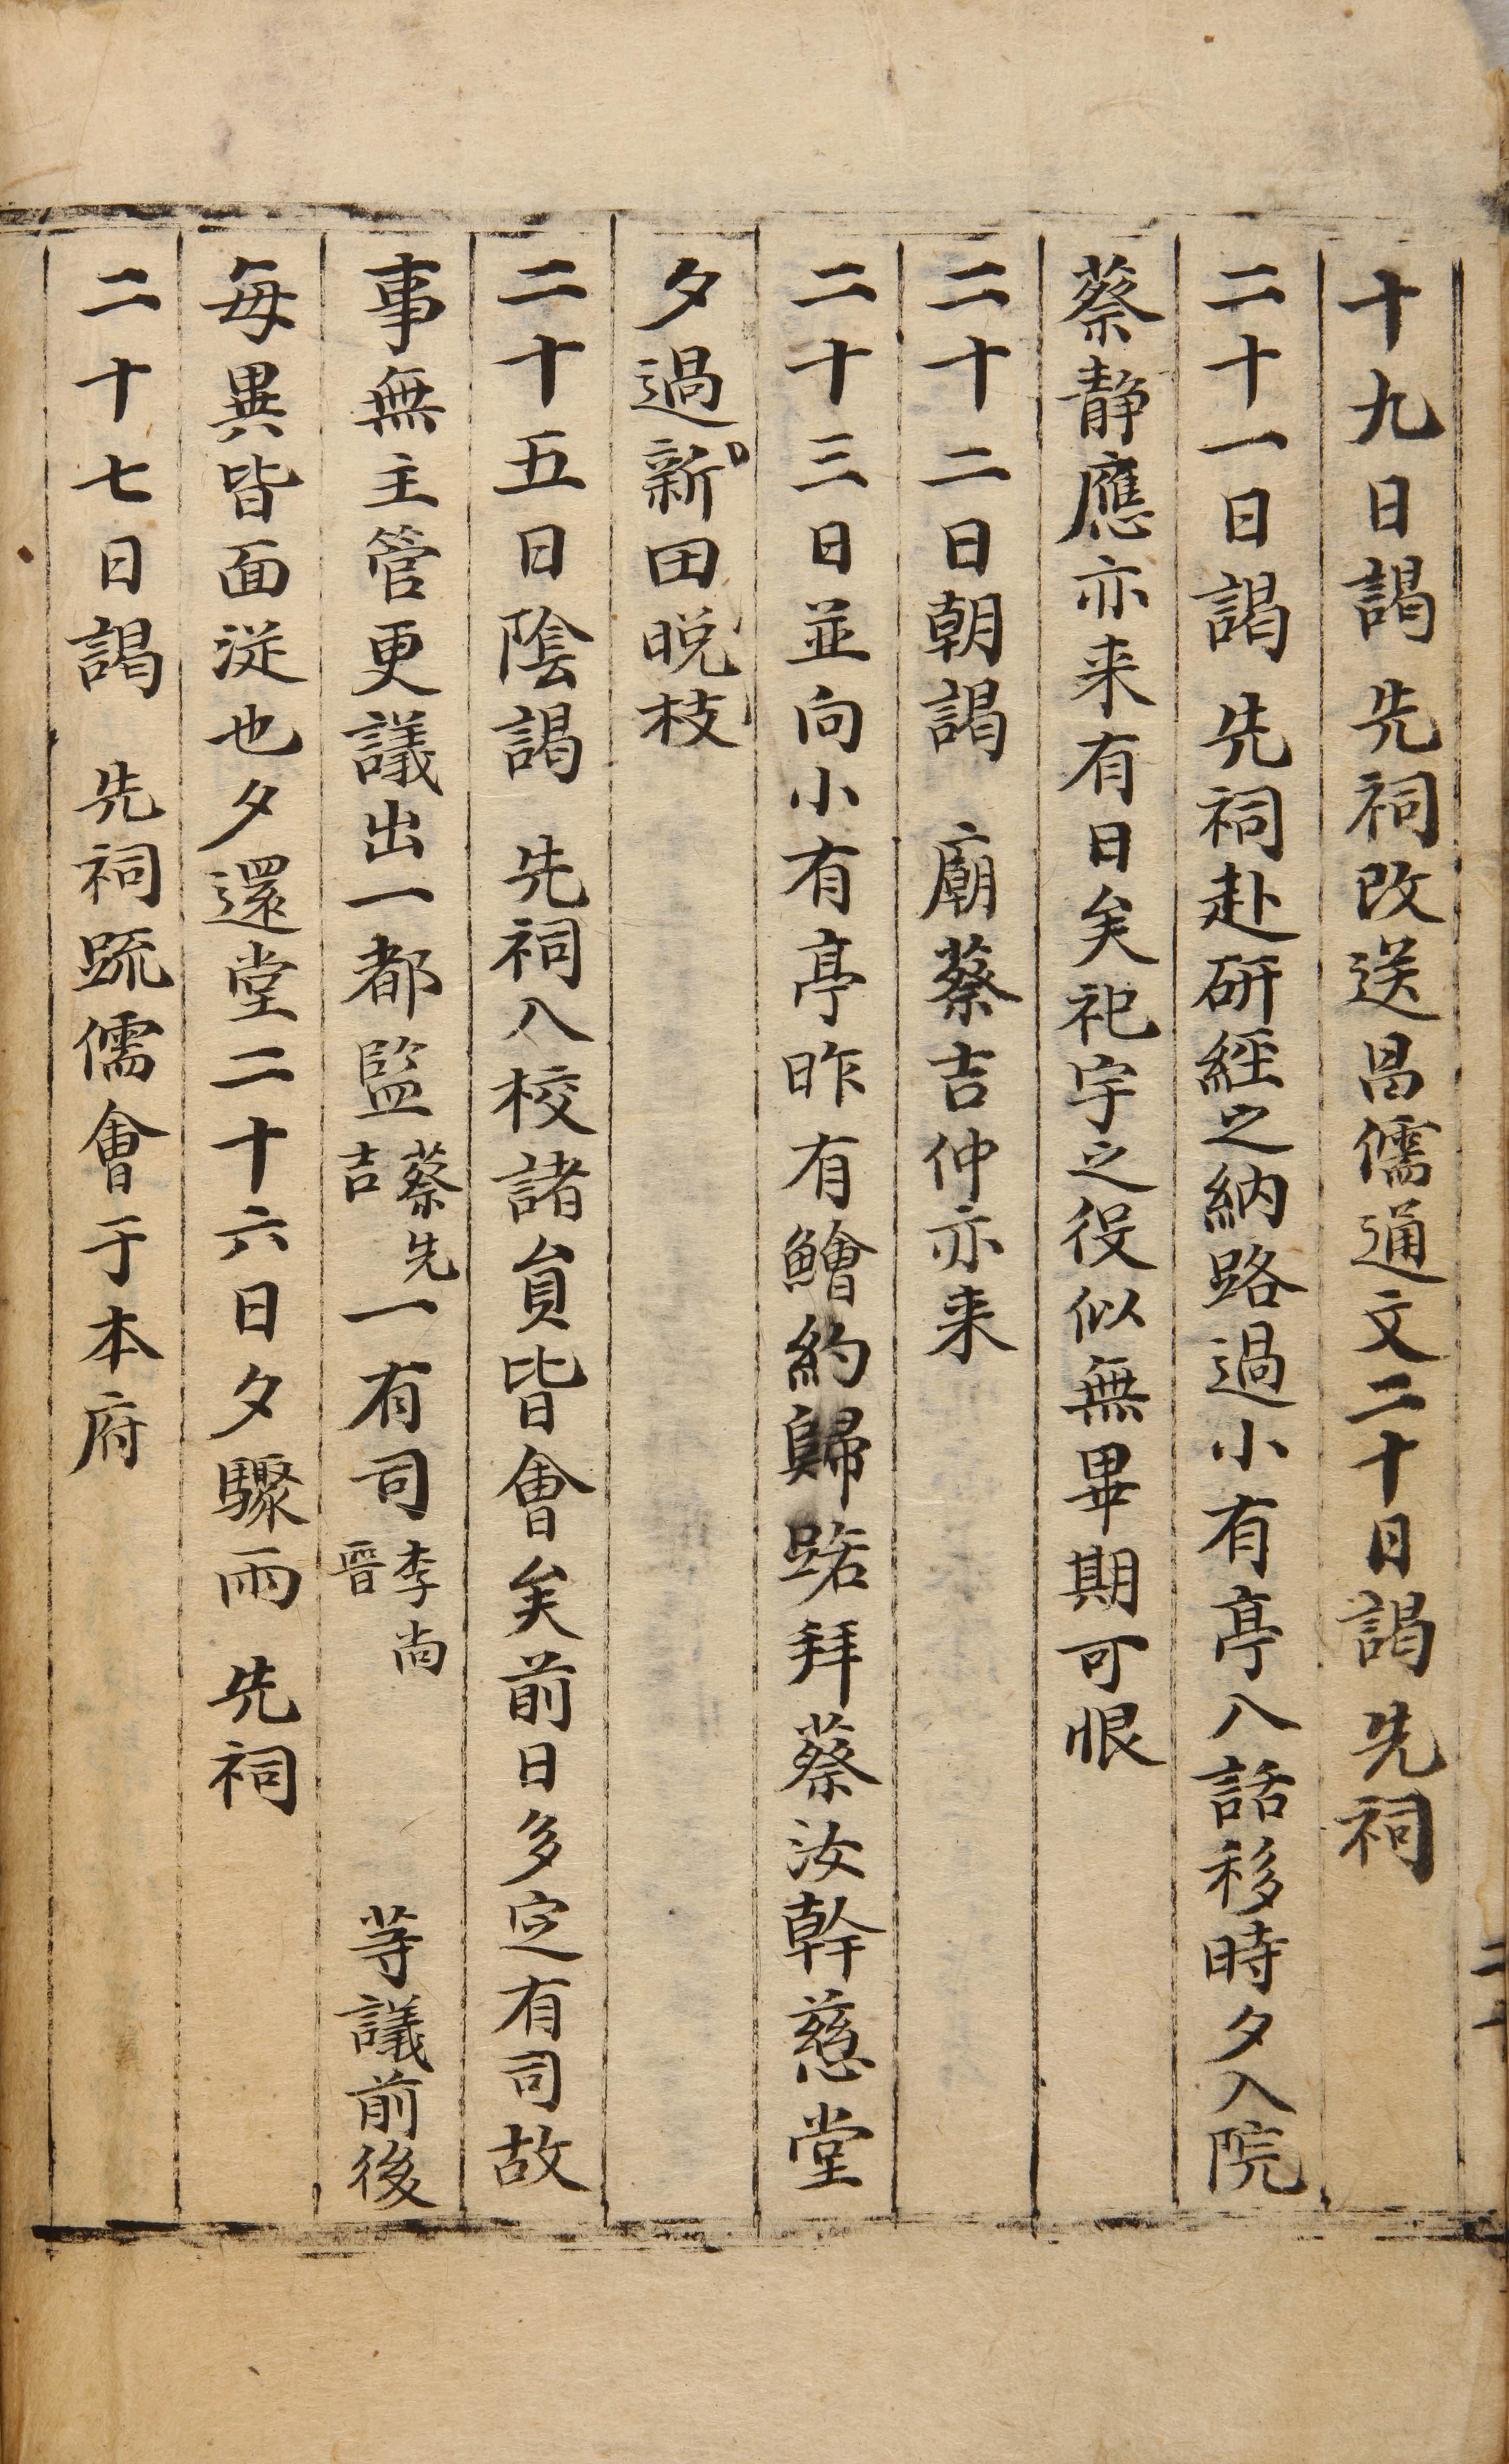 十九日謁 先祠改送昌儒通文二十日謁 先祠
二十一日謁 先祠赴研經之納路過小有亭八話移時夕入院
蔡靜應亦来有日矣祀宇之役似無畢期可恨
二十二日朝謁 廟蔡吉仲亦来
二十三日並向小有亭昨有鱠約歸路拜蔡汝幹慈堂
夕過新田晩枝
二十五日陰謁 先祠入校諸員皆會矣前日多定有司故
事無主管更議出一都監蔡先吉一有司李尚晋 等議前後
每異皆面涎也夕還堂二十六日夕驟雨 先祠
二十七日謁 先祠䟽儒會于本府